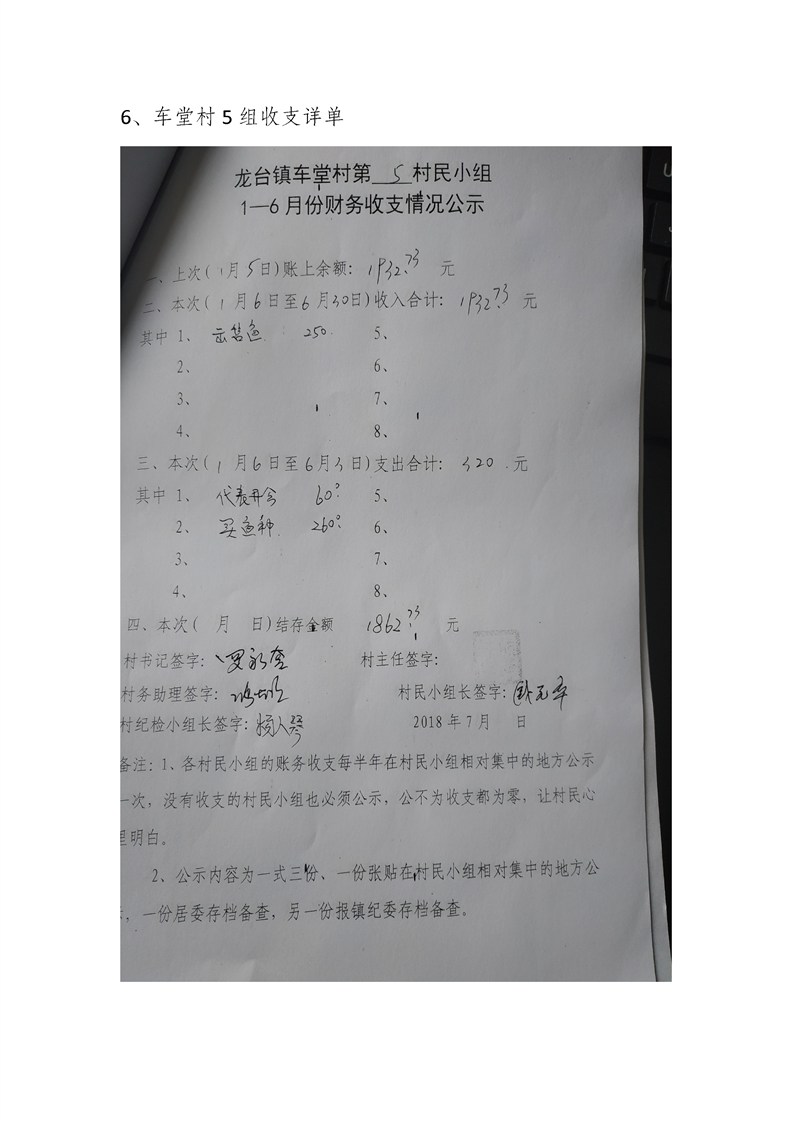 6、车堂村 5 组收支详单
龙台镇车堂村第 5 村民小组
1—6 月份财务收支情况公示
一、上次(1月5日)账上余额: 1932.73 元
二、本次(1月6日至6月30日)收入合计: 1932.73 元
其中 1、 出售鱼 250. 5、
2、 6、
3、 7、
4、 8、
三、本次(1月6日至6月3日)支出合计: 320. 元
其中 1、 代表开会 60.0 5、
2、 买鱼种 260.0 6、
3、 7、
4、 8、
四、本次( 月 日)结存金额 1862.73 元
村书记签字: 村主任签字:
村务助理签字: 村民小组长签字:
村纪检小组长签字: 2018 年 7 月 日
备注:1、各村民小组的账务收支每半年在村民小组相对集中的地方公示
一次，没有收支的村民小组也必须公示，公不为收支都为零，让村民心
里明白。
2、公示内容为一式三份、一份张贴在村民小组相对集中的地方公
，一份居委存档备查，另一份报镇纪委存档备查。